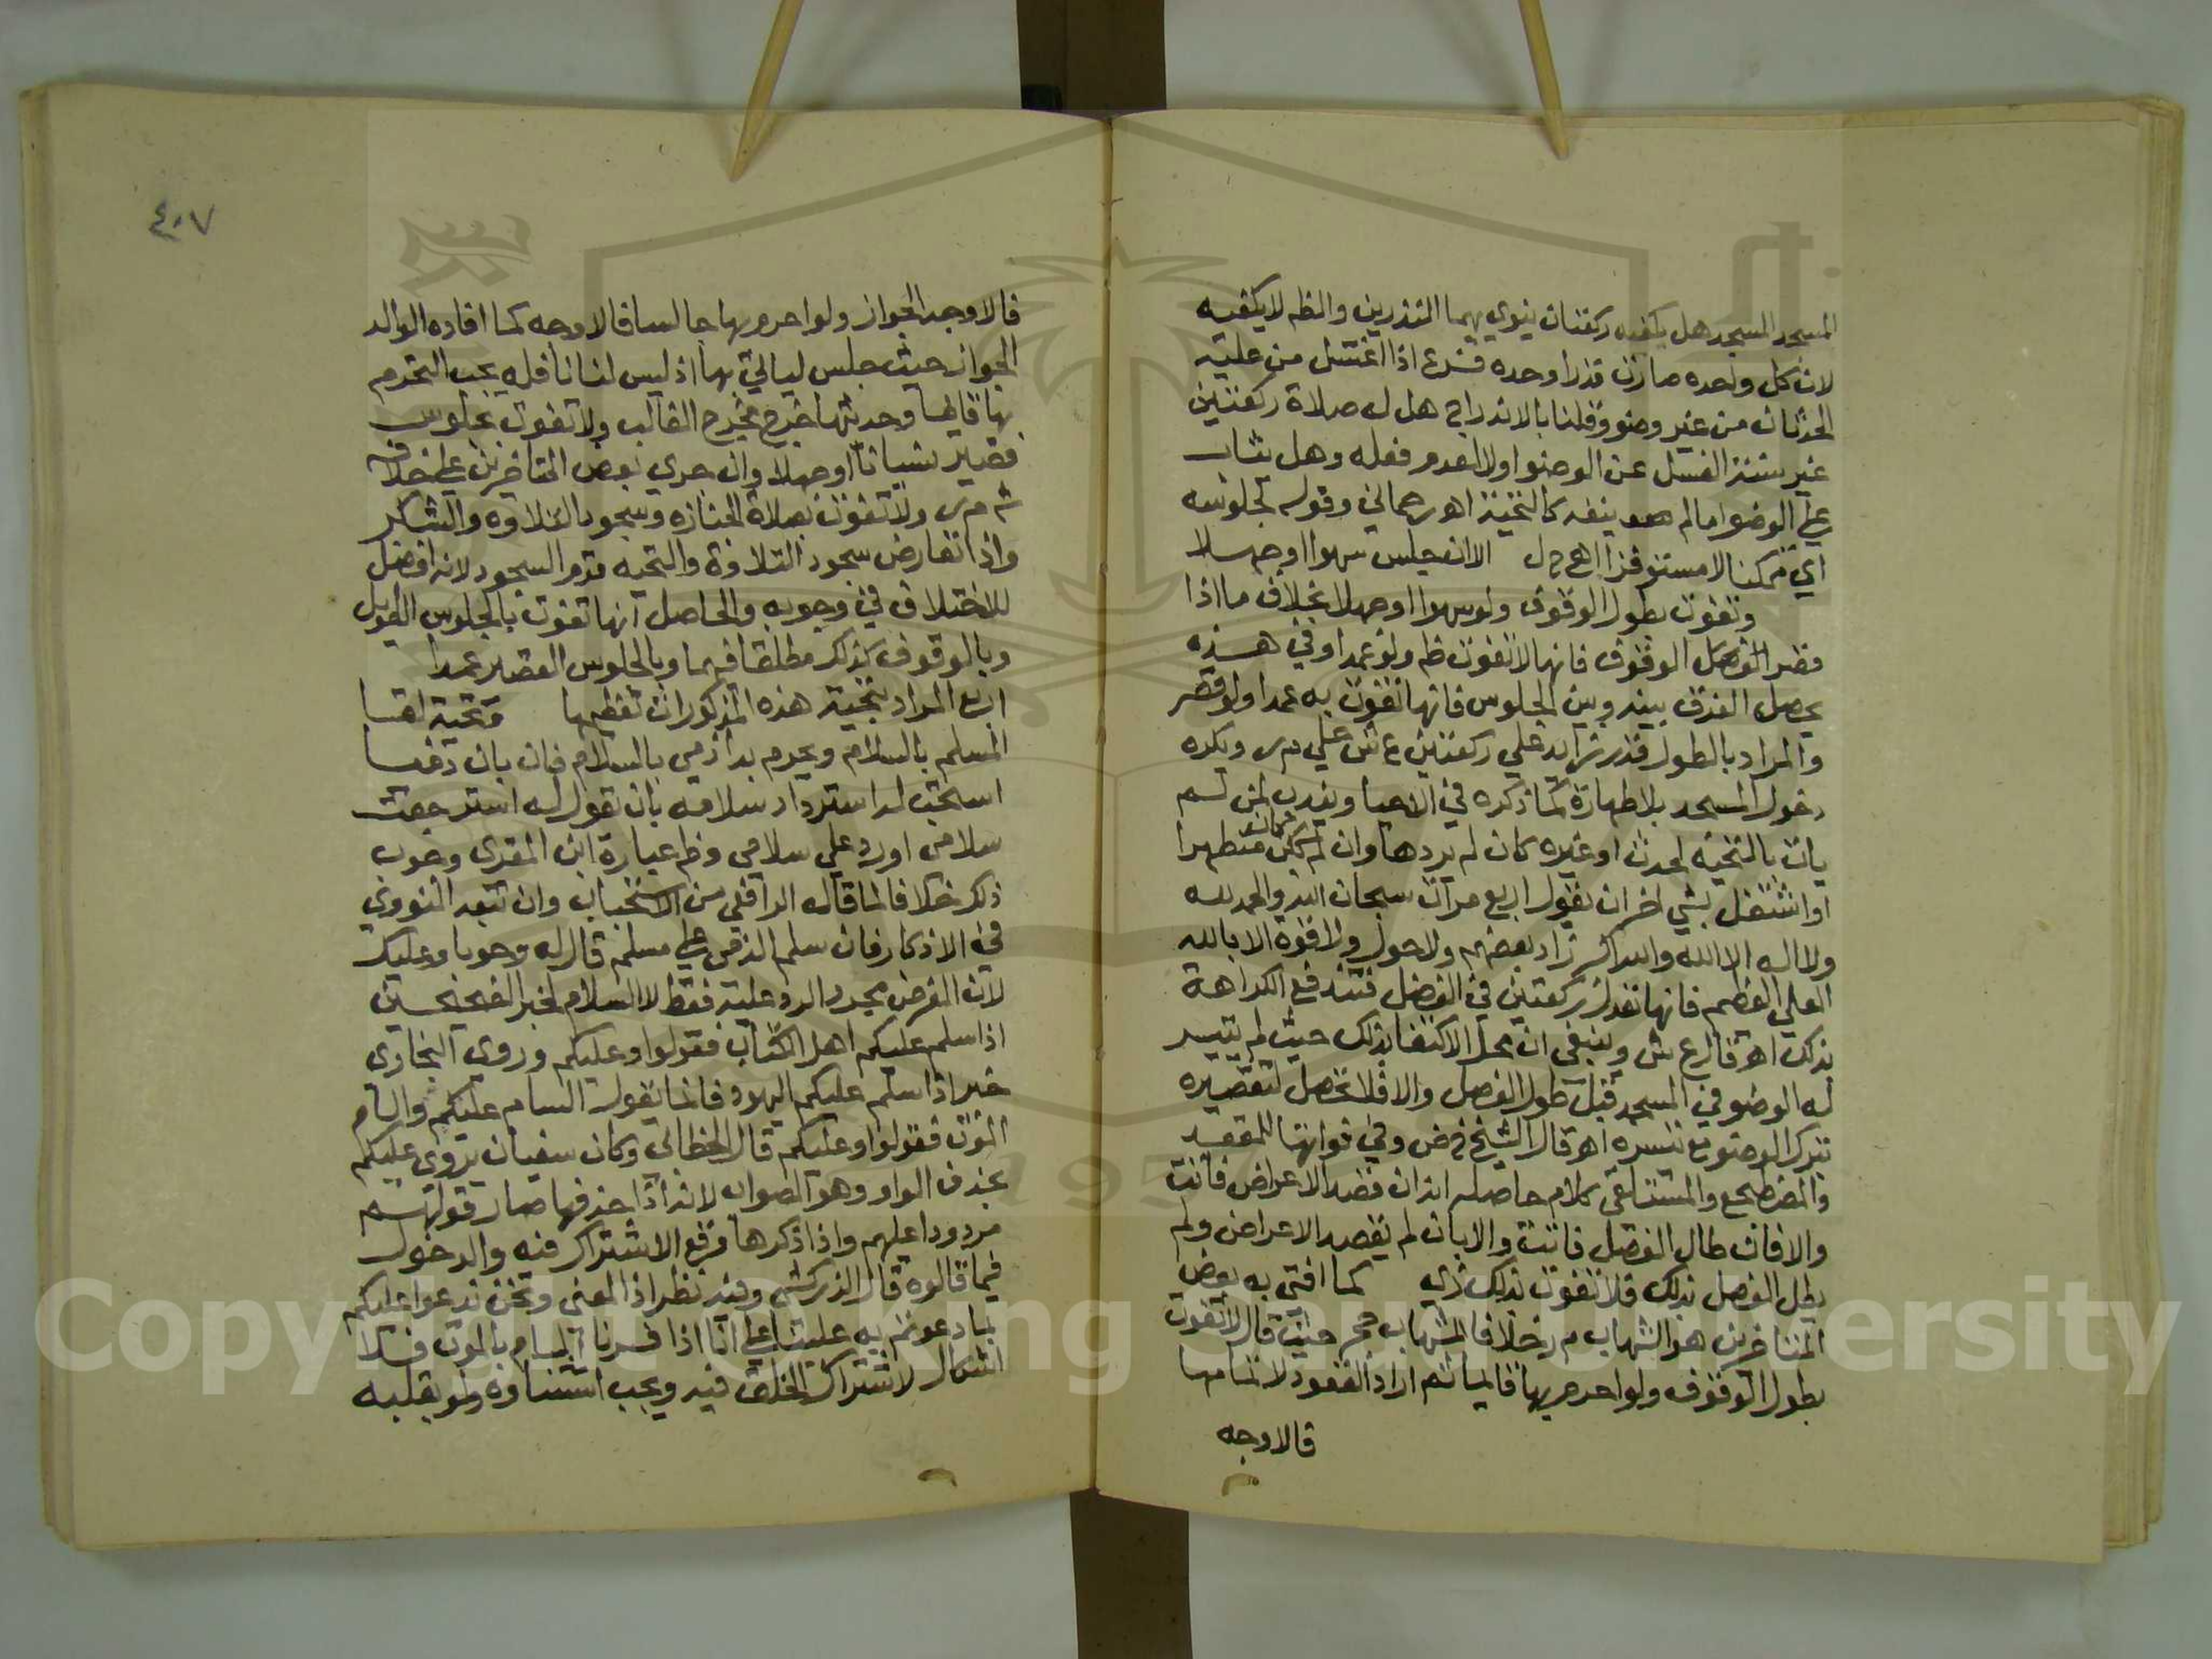 المسجد المسجد هل يكفيه ركعتان ينوي بهما النذرين والظم لا يكفيه
لان كل واحده صارت قدرا وحده فرع اذا اغتسل من عليه
الحدثان من غير وضو وقلنا بالاندراج هل له صلاة ركعتين
غير سنة الغسل عن الوضوا ولا العدم فعله وهل يثاب
علي الوضوا ما لم ينفه كالتحية اهو رحماني وقوله بجلوسه
اي متمكنا لا مستوفزا اهج ل الا ان جلس سهوا او جهلا
وتفوت بطول الوقوف ولو سهوا او جهلا بخلاف ما اذا
قصر الفصل الوقوف فانها لا تفوت ظم ولو عمدا وفي هذه
يحصل الفرق بينه وبين الجلوس فانها تفوت به عمدا ولو قصر
والمراد بالطول قدر زايد علي ركعتين ع ش علي م ر ويكره
دخول المسجد بلا طهارة كما ذكره في الاحيا ويندب لمن لم
يات بالتحية لحدث او غيره كان لم يردها وان كان متطهرا
او اشتغل بشي اخر ان يقول اربع مرات سبحان الله والحمد لله
ولا اله الا الله والله اكبر زاد بعضهم ولا حول ولا قوة الا بالله
العلي العظيم فانها تعدل ركعتين في الفضل فتندفع الكراهة
بذلك اهو قال ع ش وينبغي ان محل الاكتفا بذلك حيث لم يتيسر
له الوضو في المسجد قبل طول الفصل والا فلا تحصل لتقصيره
بترك الوضو مع تيسره اهو قال الشيخ خ ض وفي فواتها للمقعد
والمضطجع والمستلقي كلام حاصله انه ان قصد الاعراض فاتت
والا فان طال الفصل فاتت والا بان لم يقصد الاعراض ولم
يطل الفصل بذلك فلا تفوت بذلك زي كما افتي به بعض
المتاخرين هو الشهاب م ر خلافا لشهاب حجر حيث قال لا تفوت
بطول الوقوف ولو احرم بها قايما ثم اراد القعود لاتمامها
فالاوجه
٤٠٧
فالاوجه الجواز ولو احرم بها جالسا فالاوجه كما افاده الوالد
الجواز حيث جلس ليالي بها اذ ليس لنا نافله يجب التحرم
بها قايما وحديثها خرج مخرج الغالب ولا تفوت بجلوس
قصير نسيانا او جهلا وان جري بعض المتاخرين علي خلافه
ش م ر ولا تفوت بصلاة الجنازه وسجود التلاوه والشكر
واذا تعارض سجود التلاوة والتحيه قدم السجود لانه افضل
للاختلاف في وجوبه والحاصل انها تفوت بالجلوس الطويل
وبالوقوف كذلك مطلقا فيهما وبالجلوس القصير عمدا
اربع المراد بتحية هذه المذكورات تعظيمها وتحية لقا
المسلم بالسلام ويحرم بدا ذمي بالسلام فان بان ذميا
استحب له استرداد سلامه بان تقول له استرجعت
سلامي او رد علي سلامي وظم عبارة ابن المقرى وجوب
ذكر خلافا لما قاله الرافعي من الاستحباب وان تبعه النووي
في الاذكار فان سلم الذمي علي مسلم قال له وجوبا وعليك
لان الغرض مجرد الرد عليه فقط لا السلام لخبر الصحيحين
اذا سلم عليكم اهل الكتاب فقولوا وعليكم وروى البخارى
خبر اذا سلم عليكم اليهود فانما يقول السام عليكم والسام
الموت فقولوا وعليكم قال الخطابي وكان سفيان يروي عليكم
بحذف الواو وهو الصواب لانه اذا حذفها صار قولهم
مردودا عليهم واذا ذكرها وقع الاشتراك فيه والدخول
فيما قالوه قال الزركشي وفيه نظر اذ المعني ونحن ندعوا عليكم
بما دعوتم به علينا علي انا اذا فسرنا السام بالموت فلا
اشكال لاشتراك الخلق فيه ويجب استثناوه ولو بقلبه